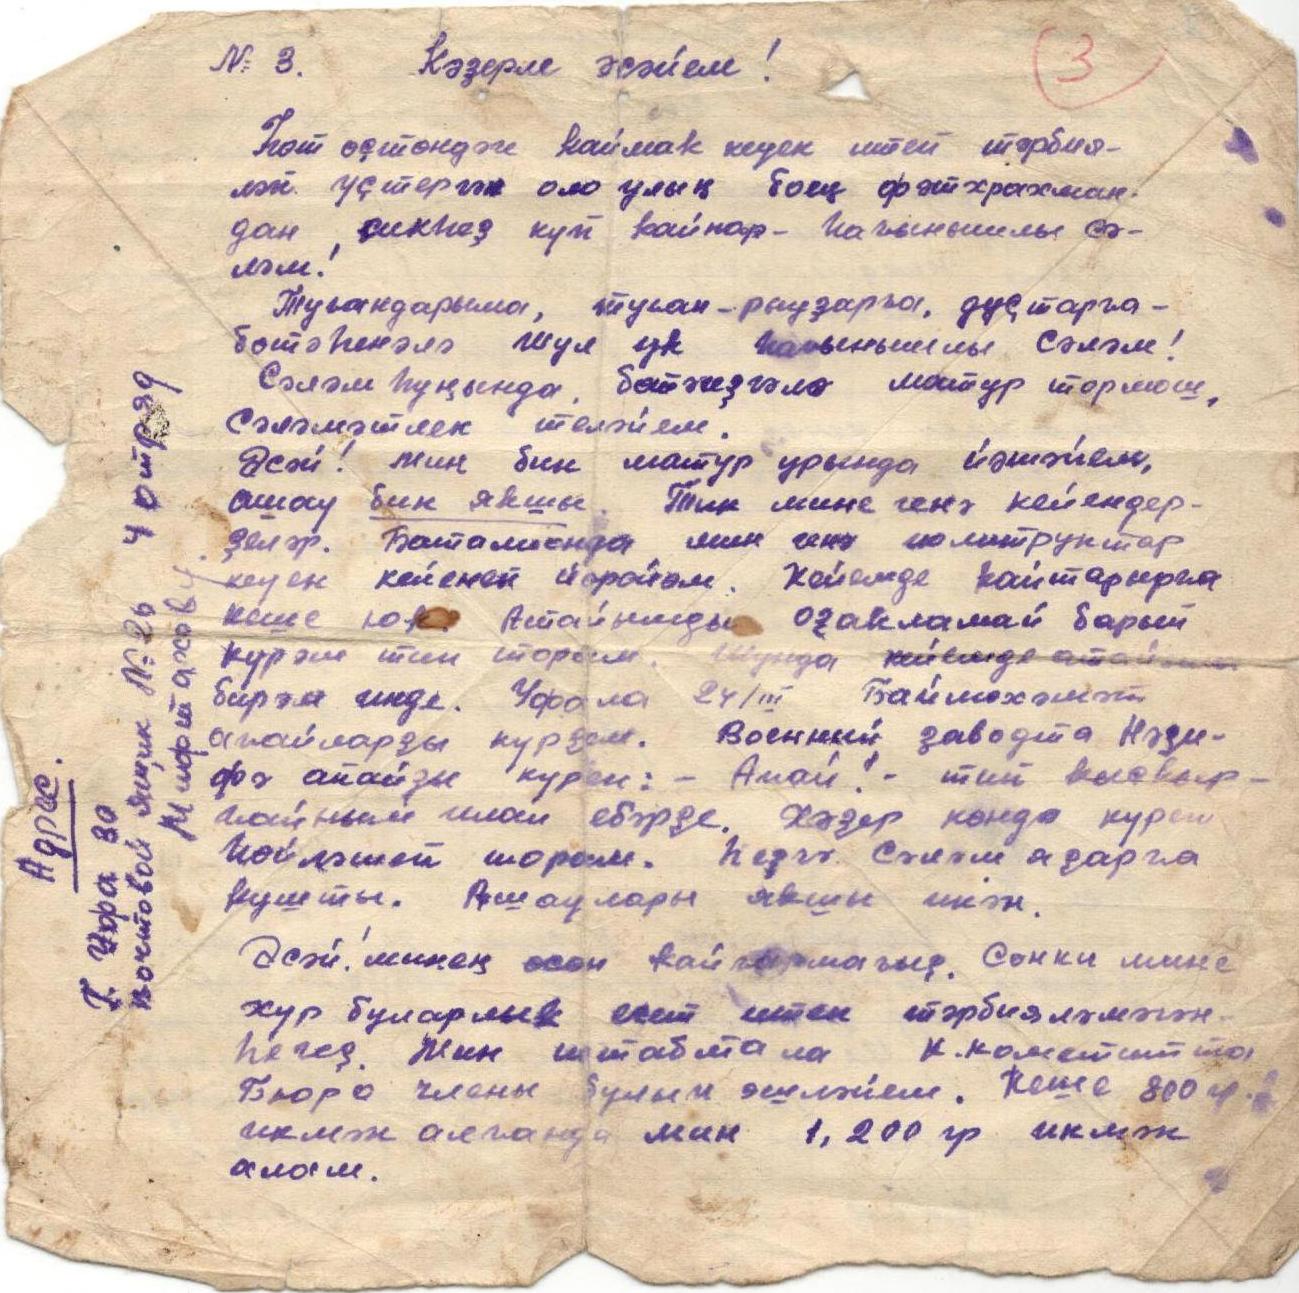 № 3. Кәзерле әсәйем! 3
Һөт өҫтөндәге каймак кеүек итеп тәрбиә-
ләп үҫтергән оло улың боец Фәтхрахман-
дан, сикһеҙ күп кайнар- һағынышлы сә-
ләм!
Туғандарыма, туған-рыуҙарға, дуҫтарға-
бөтәһенәлә шул ук һағынышлы сәләм!
Сәләм һуңында, бөтәгеҙгәлә матур тормош,
сәләмәтлек теләйем.
Әсәй! Мин бик матур урында йәшәйем,
ашау бик якшы. Тик мине генә кейендер-
ҙеләр. Батальонда мин генә политруктар
кеүек кейенеп йөрөйөм. Кейемде кайтарырға
кеше юк. Атайымды оҙакламай барып
күрәм тип торам. Шунда кейемде атайыма
бирәм инде. Уфала 24/III Баймөхәмәт
ағайларҙы күрҙем. Военний заводта Нәзи-
фә апайҙы күреп: – Апай! – тип кыскыр-
ғайным илап ебәрҙе. Хәҙер көндә күреп
һөйләшеп торам. Һеҙгә сәләм яҙарға
кушты. Ашаулары якшы икән.
Әсәй! минең өсөн кайғырмағыҙ. Сөнки мине
хур буларлык егет итеп тәрбиәләмәгән-
һегеҙ. Мин штабта ла К.комететта
Бюро члены булып эшләйем. Кеше 800 гр.
икмәк алғанда мин 1,200 гр икмәк
алам.
Адрес.
Г. Уфа 30
почтовой ящик № 26 4 отряд
Мифтахову.